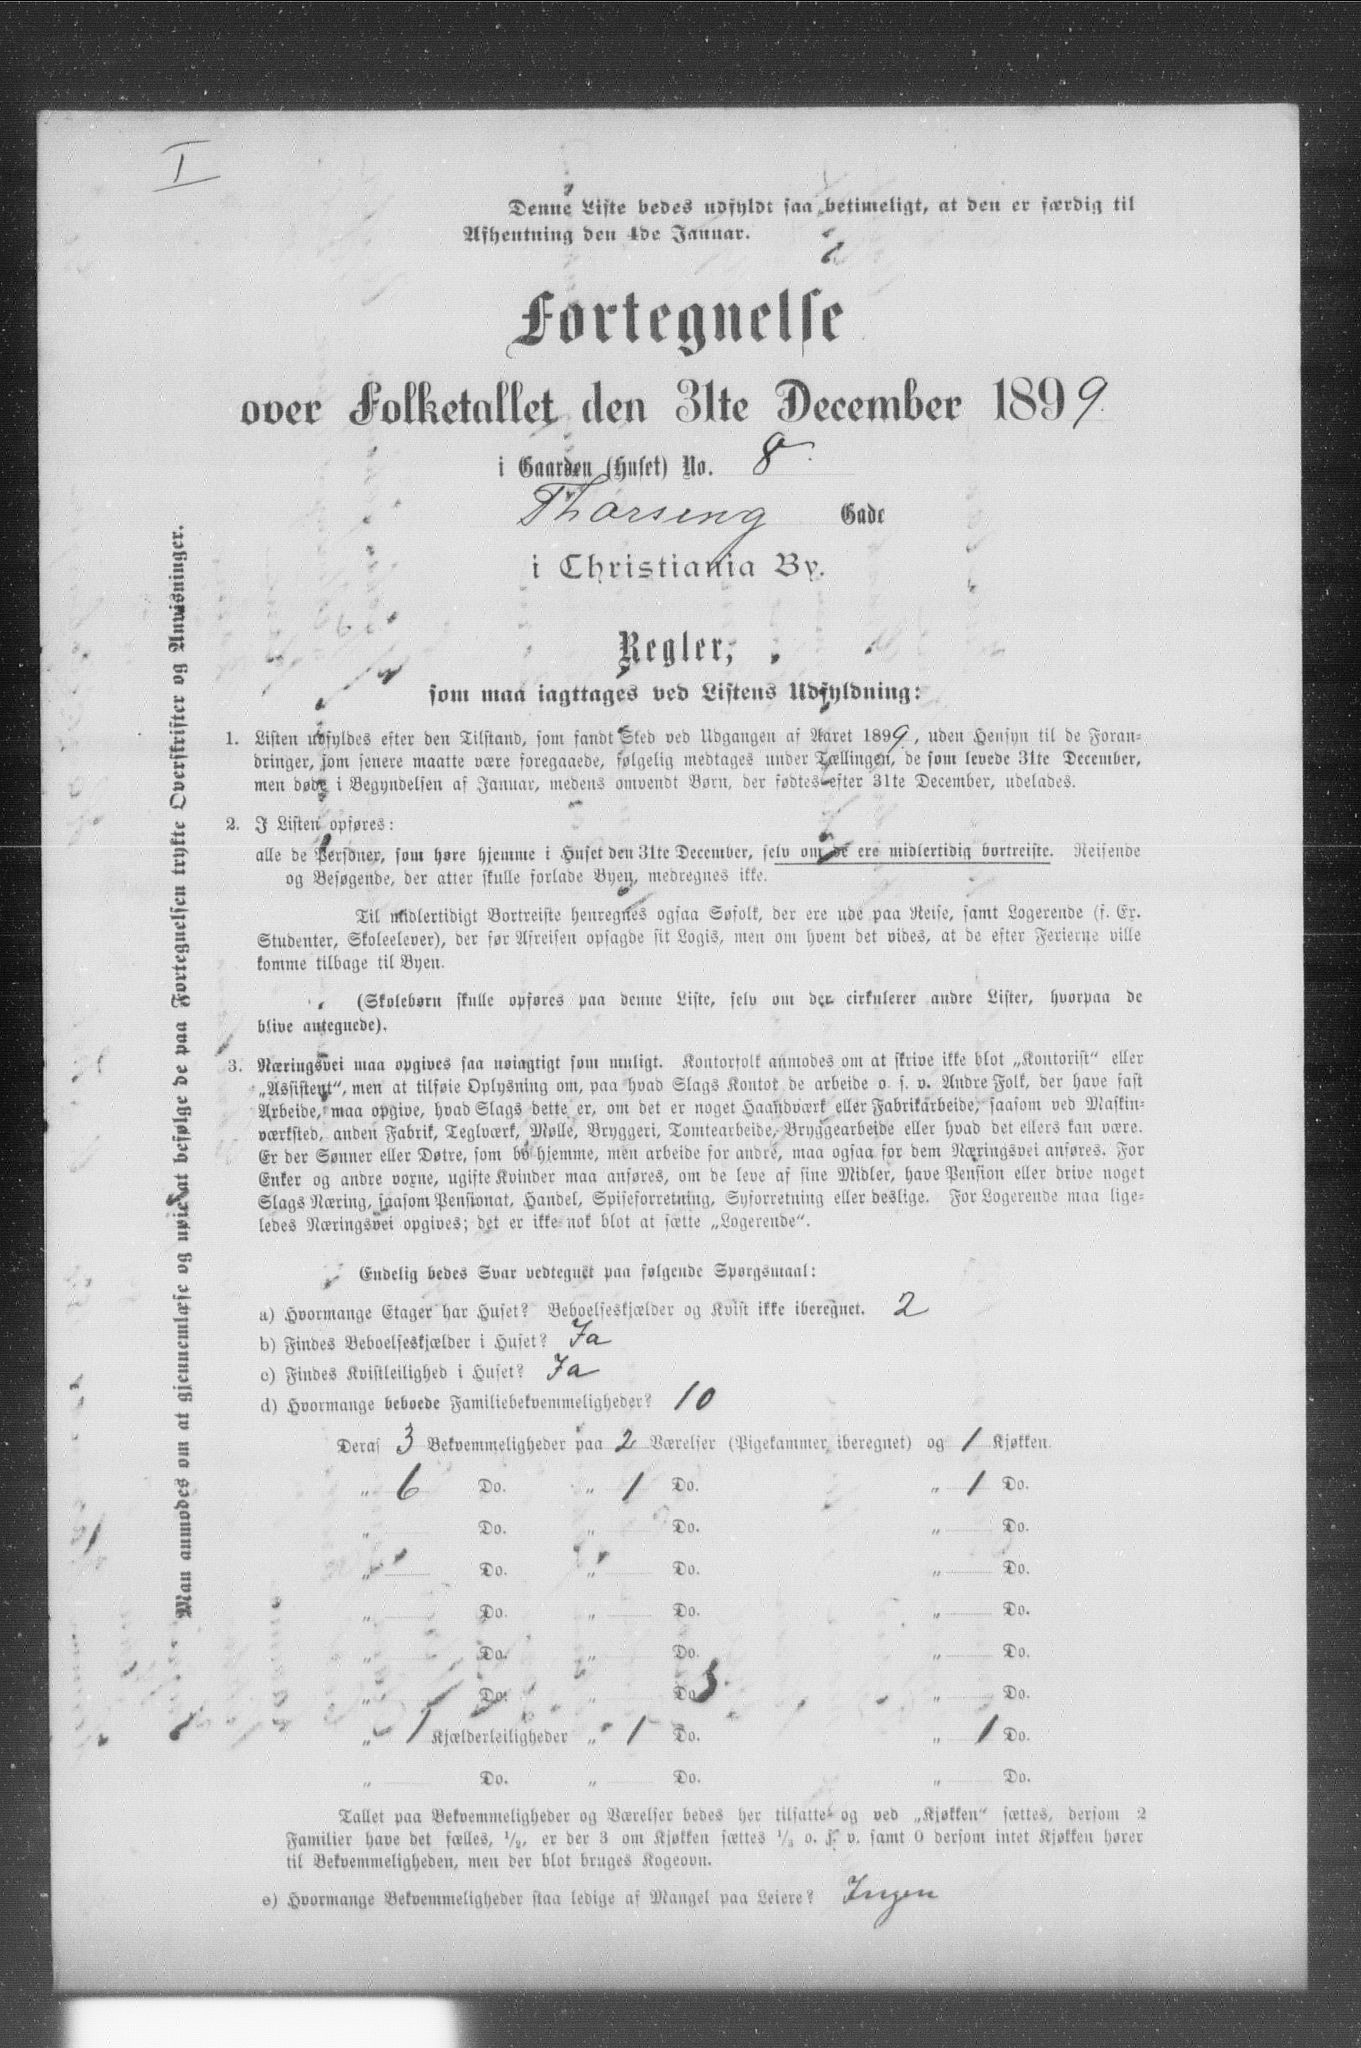 I
Denne Liste bedes udfyldt saa betimeligt, at den er færdig til
Afhentning den 4de Januar.
Fortegnelse
over Folketallet den 31te December 1899.
i Gaarden (Huset) No. 8
Thorseng Gade
i Christiania By.
Regler,
som maa iagttages ved Listens Udfyldning:
1. Listen udfyldes efter den Tilstand, som fandt Sted ved Udgangen af Aaret 1899, uden Hensyn til de Foran-
dringer, som senere maatte være foregaaede, følgelig medtages under Tællingen, de som levede 31te December,
men døde i Begyndelsen af Januar, medens omvendt Børn, der fødtes efter 31te December, udelades.
2. I Listen opføres:
alle de Personer, som høre hjemme i Huset den 31te December, selv om de ere midlertidig bortreiste. Reisende
og Besøgende, der atter skulle forlade Byen, medregnes ikke.
Til midlertidigt Bortreiste henregnes ogsaa Søfolk, der ere ude paa Reise, samt Logerende (f. Ex.
Studenter, Skoleelever), der før Afreisen opsagde sit Logis, men om hvem det vides, at de efter Ferierne ville
komme tilbage til Byen.
(Skolebørn skulle opføres paa denne Liste, selv om der cirkulerer andre Lister, hvorpaa de
blive antegnede).
3. Næringsvei maa opgives saa nøiagtigt som muligt. Kontorfolk anmodes om at skrive ikke blot „Kontorist“ eller
„Assistent“, men at tilføie Oplysning om, paa hvad Slags Kontor de arbeide o. s. v. Andre Folk, der have fast
Arbeide, maa opgive, hvad Slags dette er, om det er noget Haandværk eller Fabrikarbeide, saasom ved Maskin-
værksted, anden Fabrik, Teglværk, Mølle, Bryggeri, Tomtearbeide, Bryggearbeide eller hvad det ellers kan være.
Er der Sønner eller Døtre, som bo hjemme, men arbeide for andre, maa ogsaa for dem Næringsvei anføres. For
Enker og andre voxne, ugifte Kvinder maa anføres, om de leve af sine Midler, have Pension eller drive noget
Slags Næring, saasom Pensionat, Handel, Spiseforretning, Syforretning eller deslige. For Logerende maa lige-
ledes Næringsvei opgives; det er ikke nok blot at sætte „Logerende“.
Endelig bedes Svar vedtegnet paa følgende Spørgsmaal:
a) Hvormange Etager har Huset? Beboelseskjælder og Kvist ikke iberegnet. 2
b) Findes Beboelseskjælder i Huset? Ja
c) Findes Kvistleilighed i Huset? Ja
d) Hvormange beboede Familiebekvemmeligheder? 10
Deraf 3 Bekvemmeligheder paa 2 Værelser (Pigekammer iberegnet) og 1 Kjøkken.
„ 6 Do. „ 1 Do. „ 1 Do.
„ Do. „ Do. „ Do.
„ Do. „ Do. „ Do.
„ Do. „ Do. „ Do.
„ Do. „ Do. „ Do.
„ Do. „ Do. „ Do.
„ 1 Kjælderleiligheder „ 1 Do. „ 1 Do.
„ Do. „ Do. „ Do.
Tallet paa Bekvemmeligheder og Værelser bedes her tilsatte og ved „Kjøkken“ sættes, dersom 2
Familier have det fælles, 1/2, er der 3 om Kjøkken sættes 1/3 o. s. v. samt 0 dersom intet Kjøkken hører
til Bekvemmeligheden, men der blot bruges Kogeovn.
e) Hvormange Bekvemmeligheder staa ledige af Mangel paa Leiere? Ingen
Man anmodes om at gjennemlæse og nøie at befølge de paa Fortegnelsen trykte Overskrifter og Anvisninger.